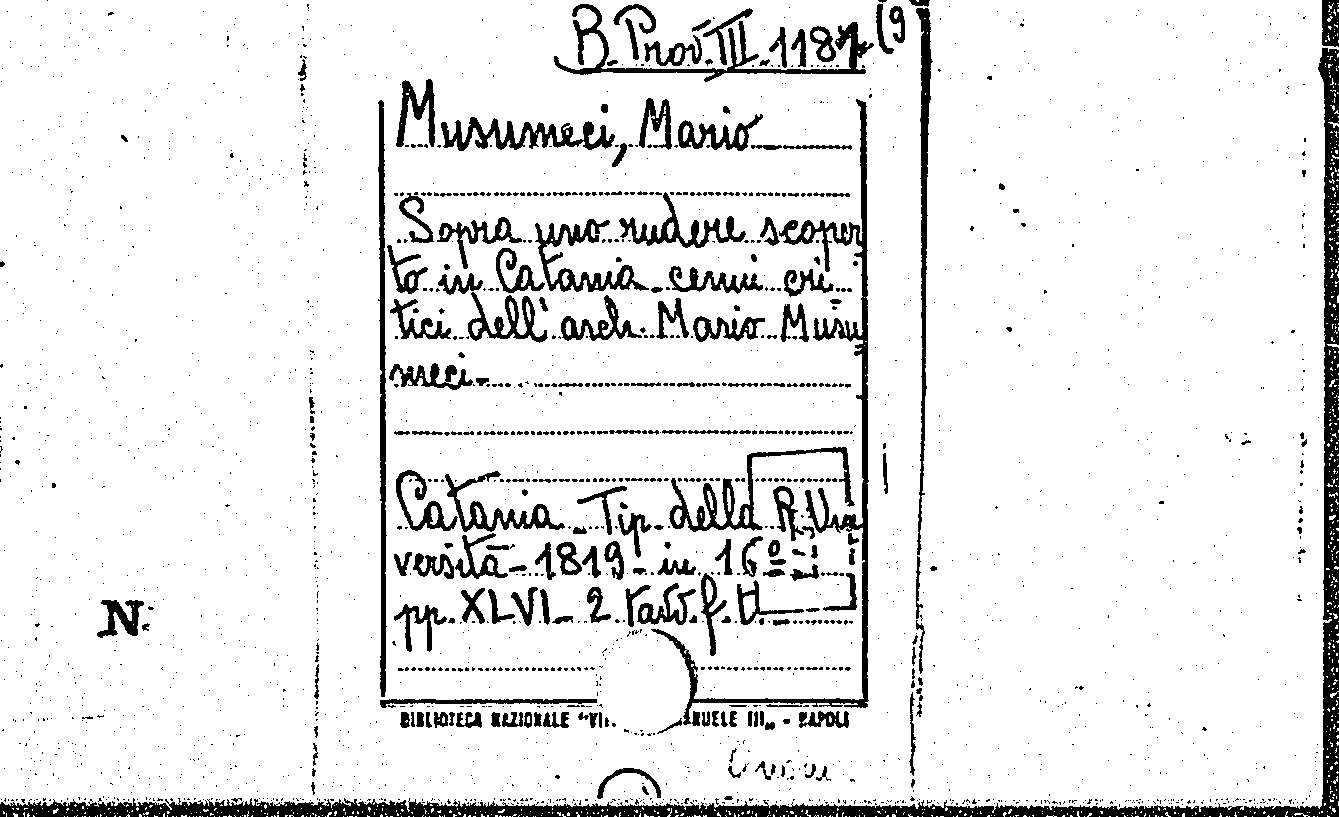 B. Prov. III. 1187 (9
Musumeci, Mario
Sopra uno rudere scoper
to in Catania cenni cri
tici dell'arch. Mario Musu
meci-
Catania - Tip. della R. Uni
versità - 1819 - in 16º
pp. XLVI - 2 tavv. f. t.
N.
BIBLIOTECA NAZIONALE "VI NUELE III„ - NAPOLI